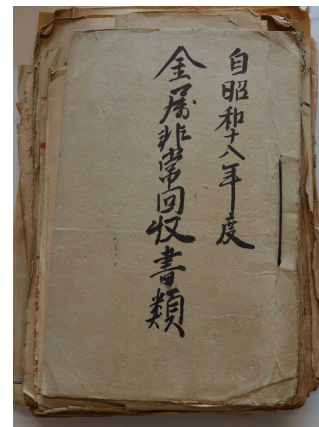 自昭和十八年度
金属非常回収書類